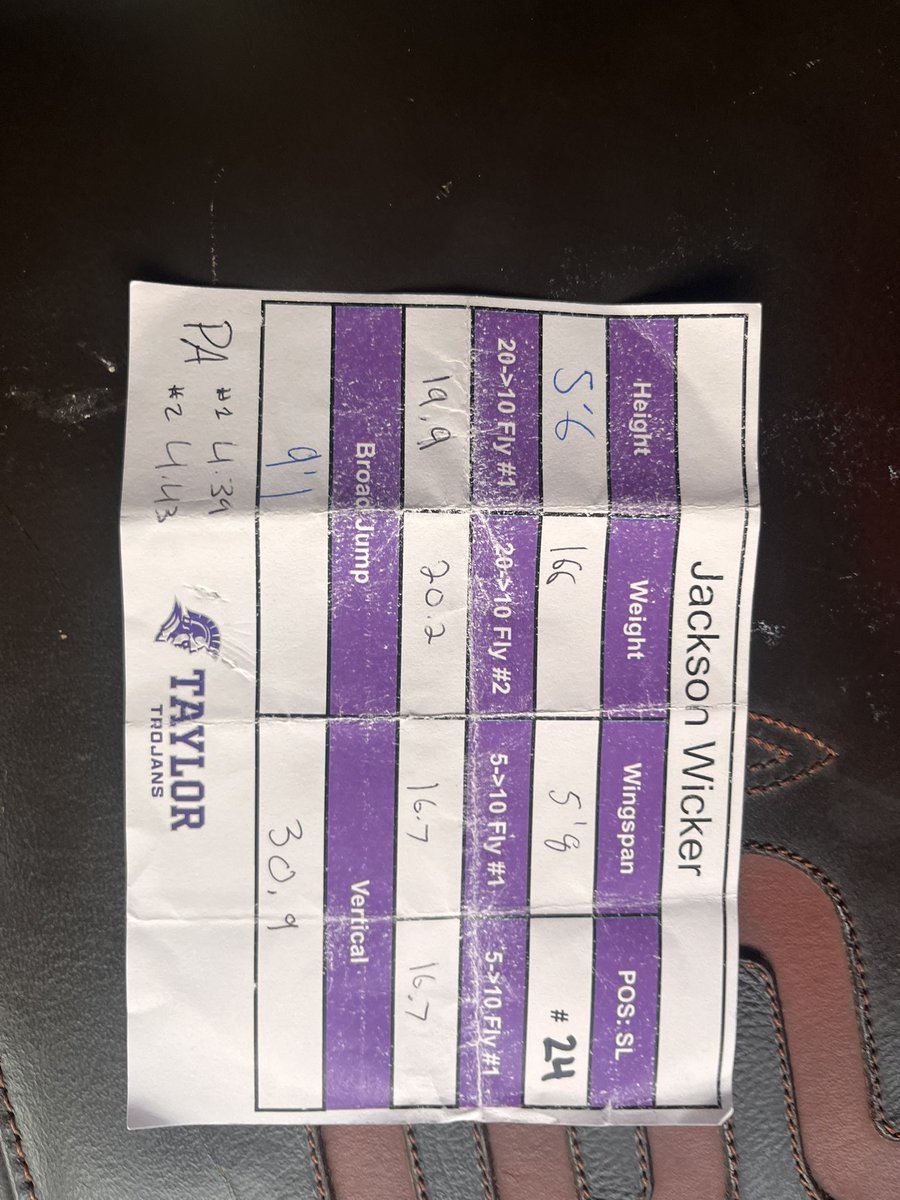 Jackson Wicker
Height Weight Wingspan POS: SL
5'6 166 5'8 # 24
20->10 Fly #1 20->10 Fly #2 5->10 Fly #1 5->10 Fly #1
19.9 20.2 16.7 16.7
Broad Jump Vertical
9'1 30.9
PA #1 4.39
#2 4.43
TAYLOR
TROJANS